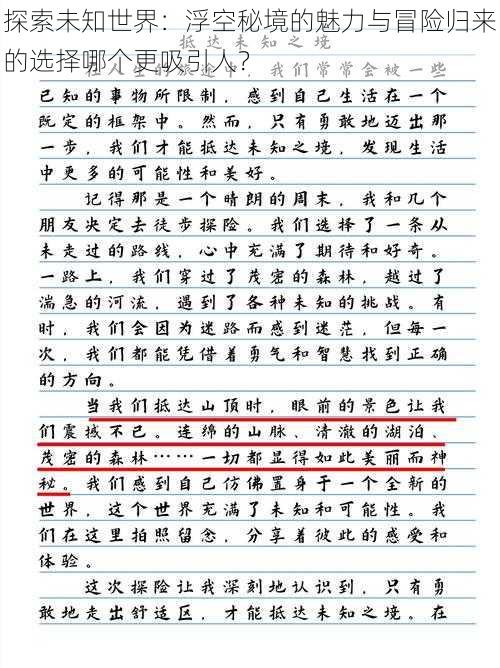 探索未知世界：浮空秘境的魅力与冒险归来
的选择哪个更吸引人？
抵达未知之境
在人生的旅途中，我们常常会被一些
己知的事物所限制，感到自己生活在一个
既定的框架中。然而，只有勇敢地迈出那
一步，我们才能抵达未知之境，发现生活
中更多的可能性和美好。
记得那是一个晴朗的周末，我和几个
朋友决定去徒步探险。我们选择了一条从
未走过的路线，心中充满了期待和好奇。
一路上，我们穿过了茂密的森林，越过了
湍急的河流，遇到了各种未知的挑战。有
时，我们会因为迷路而感到迷茫，但每一
次，我们都能凭借着勇气和智慧找到正确
的方向。
当我们抵达山顶时，眼前的景色让我
们震撼不已。连绵的山脉、清澈的湖泊、
茂密的森林……一切都显得如此美丽而神
秘。我们感到自己仿佛置身于一个全新的
世界，这个世界充满了未知和可能性。我
们在这里拍照留念，分享着彼此的感受和
体验。
这次探险让我深刻地认识到，只有勇
敢地走出舒适区，才能抵达未知之境。在